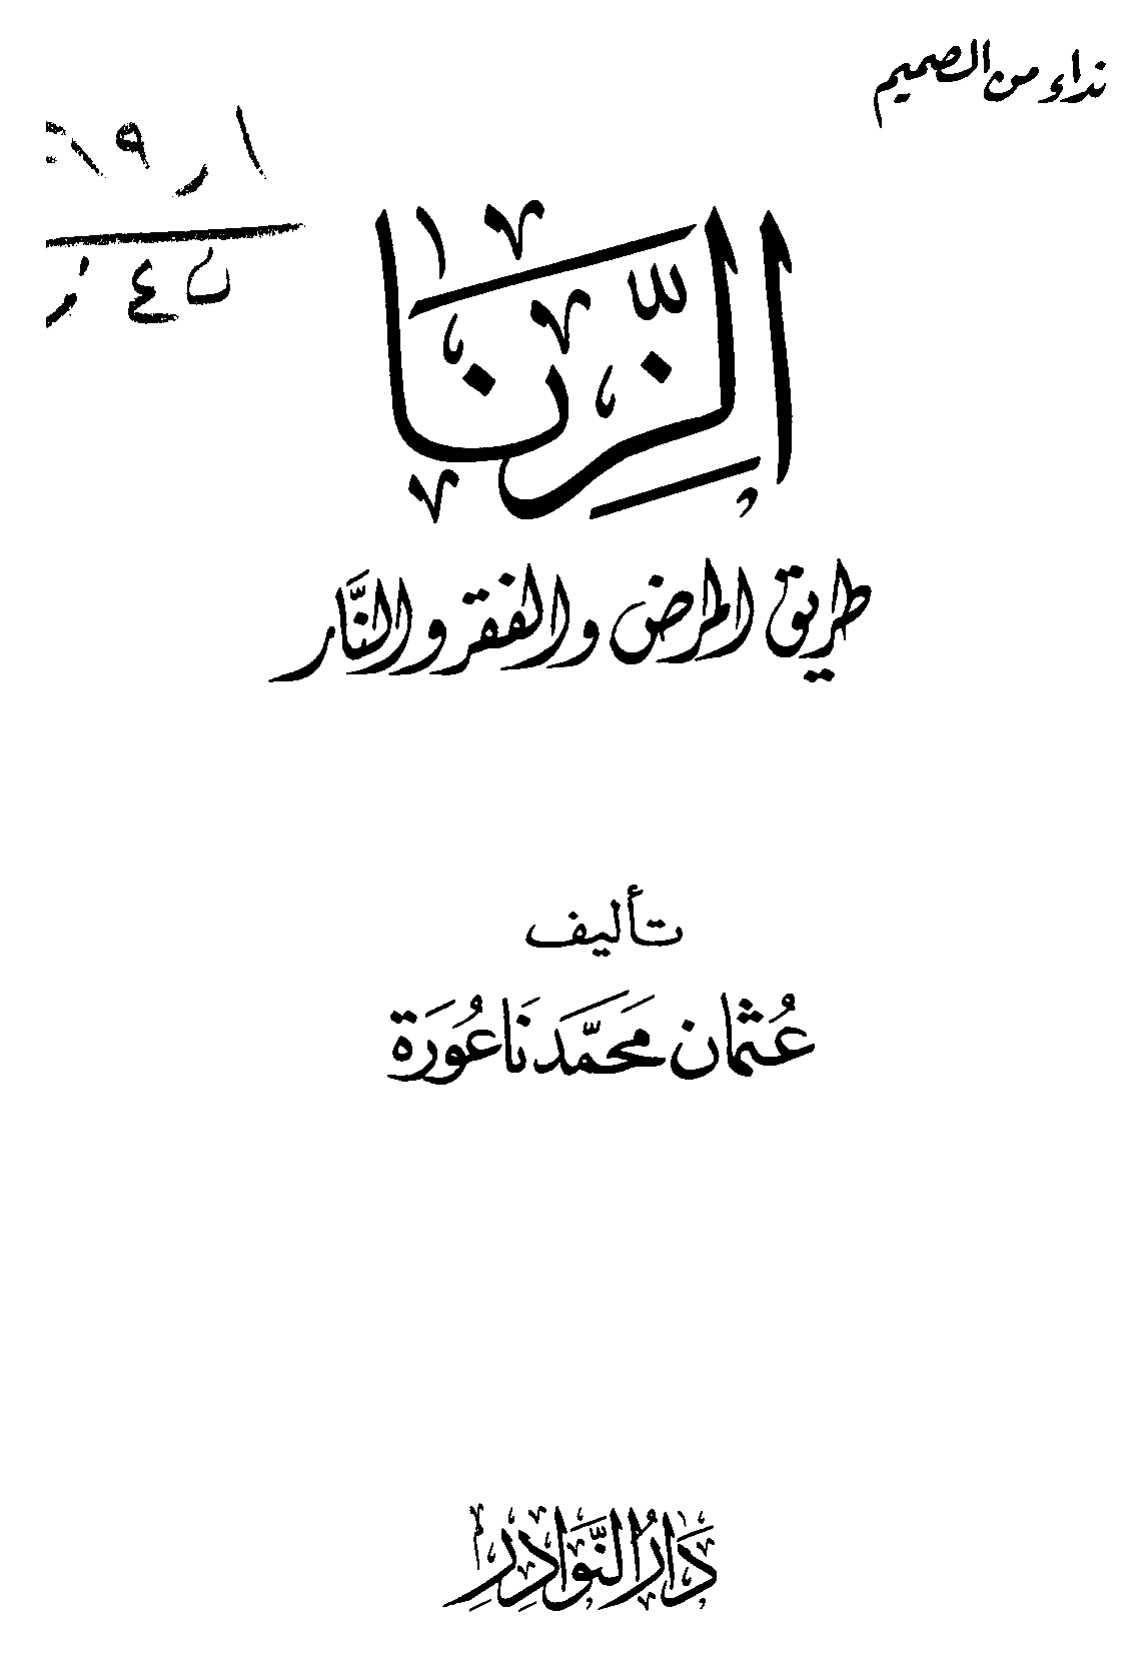 نداء من الصميم
الزِّنَا
طريق المرض والفقر والنَّار
تأليف
عُثمان محمَّد نَاعُورَة
دَارُ النَّوَادِرِ